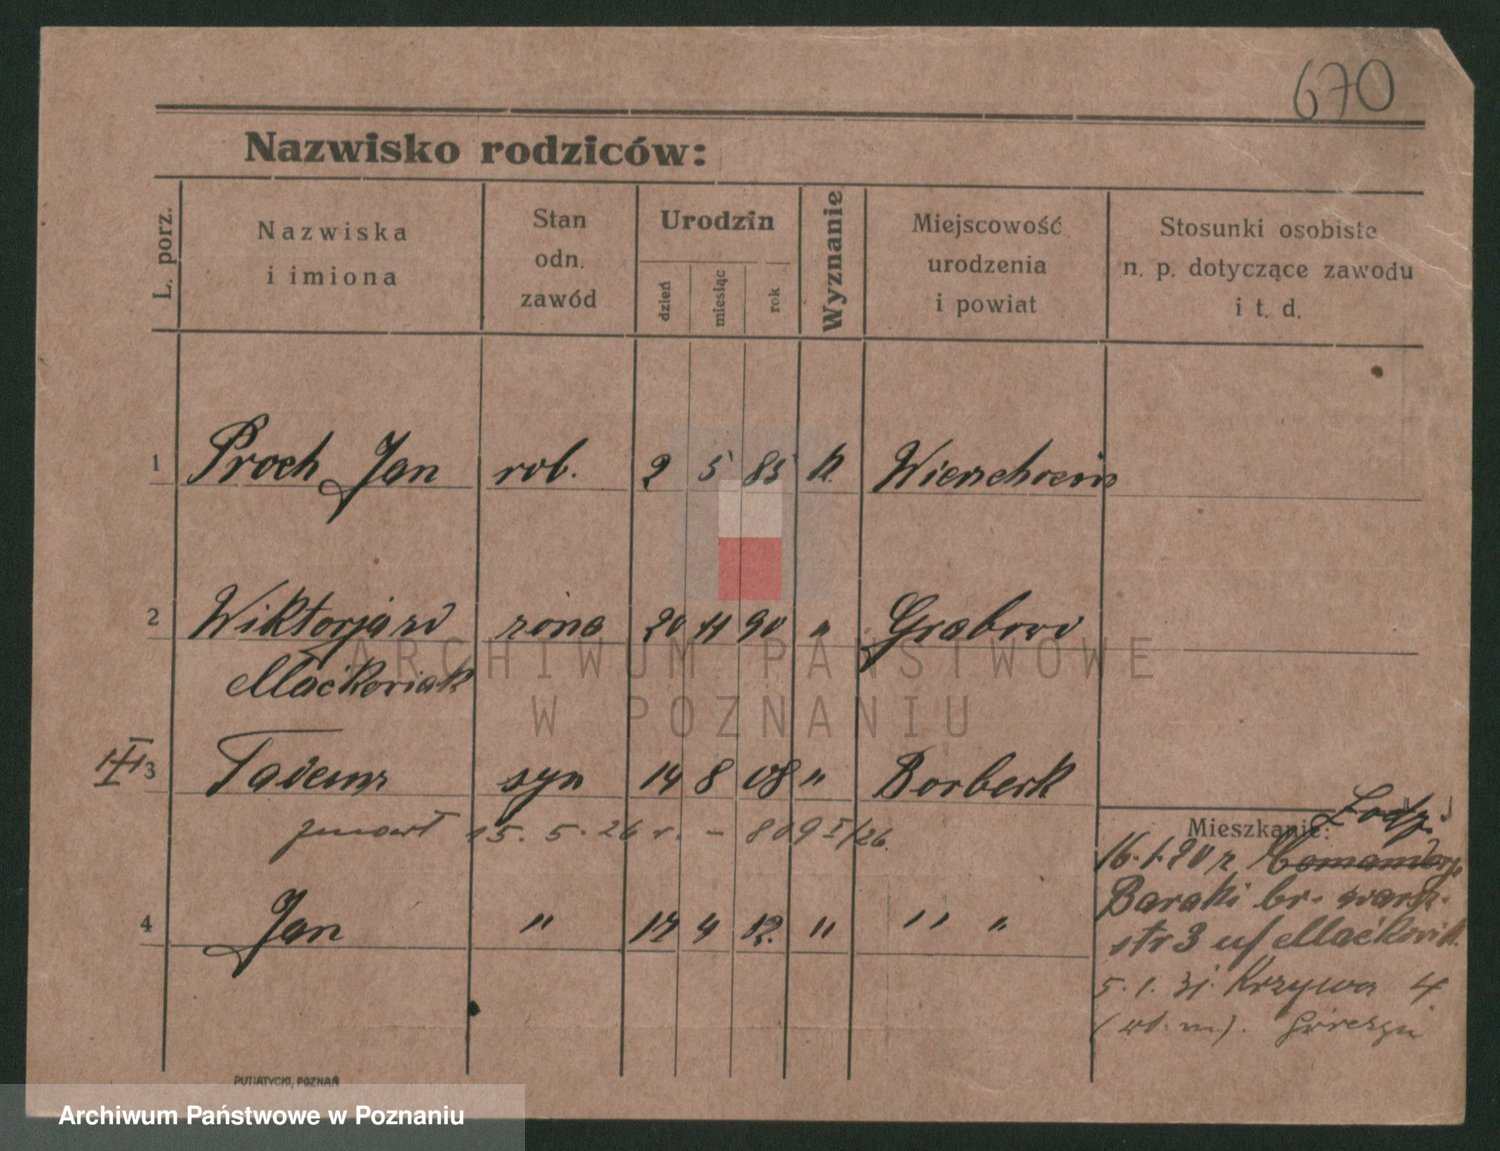 670
Nazwisko rodziców:
L. porz.
Nazwiska
i imiona
Stan
odn.
zawód
Urodzin
dzień
miesiąc
rok
Wyznanie
Miejscowość
urodzenia
i powiat
Stosunki osobiste
n. p. dotyczące zawodu
i t. d.
1 Proch Jan rob. 2 5 85 k. Wierzchocin
2 Wiktorja zd żona 20 11 90 " Grabowo
Maćkowiak
3 Tadeusz syn 14 8 08 " Borbeck
zmarł 15. 5. 26 r. - 809 I/26.
4 Jan " 17 4 12. " " "
Łodź
Mieszkanie:
16.1.20 r
Baraki br. warsz.
str 3 u/ Maćkowiak
5. 1. 31. Krzywa 4
PUTIATYCKI, POZNAŃ
ARCHIWUM PAŃSTWOWE
W POZNANIU
Archiwum Państwowe w Poznaniu